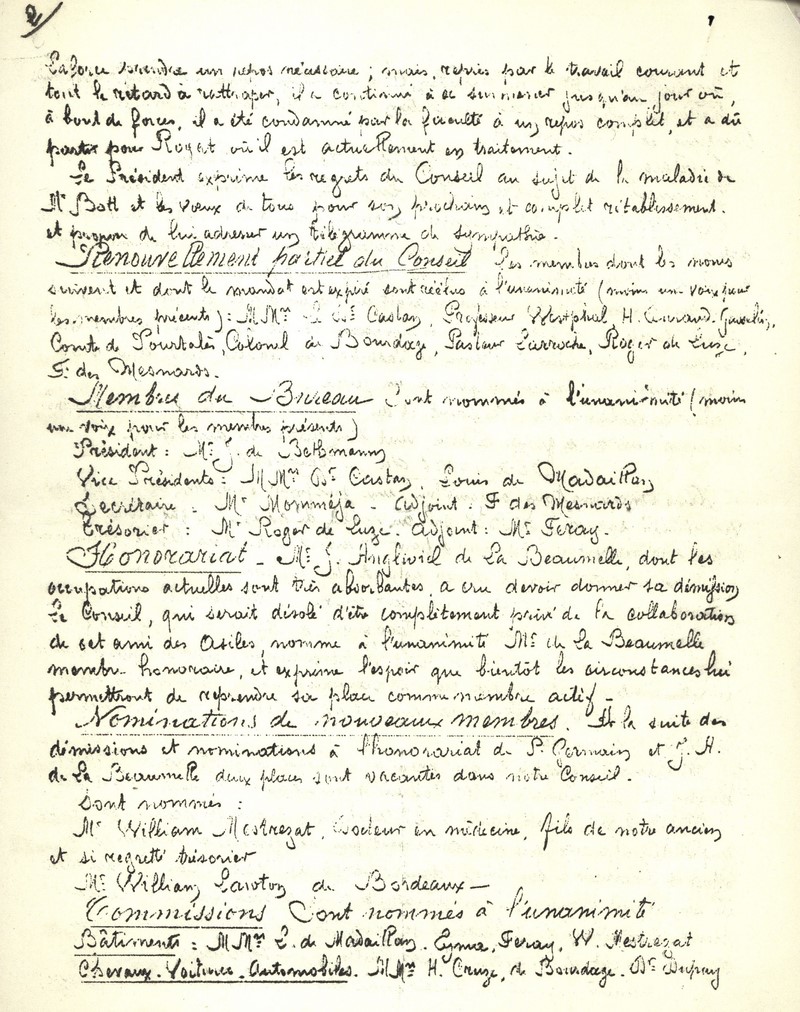 2/
Laforce prendre un repos nécessaire ; mais, repris par le travail courant et
tout le retard à rattraper, il a continué à se surmener jusqu'au jour où,
à bout de forces, il a été condamné par la faculté à un repos complet, et a dû
partir pour Royat où il est actuellement en traitement.
Le Président exprime les regrets du Conseil au sujet de la maladie de
Mr Bott et les vœux de tous pour son prochain et complet rétablissement.
et propose de lui adresser un télégramme de sympathie.
Renouvellement partiel du Conseil Les membres dont les noms
suivent et dont le mandat est expiré sont réélus à l'unanimité (moins une voix pour
les membres présents) : MMrs Dr Castan, Professeur Westphal, H.
Comte de Pourtalès, Colonel de Bourdage, Pasteur Larroche, Roger de Luze,
F. des Mesnards.
Membres du Bureau Sont nommés à l'unanimité (moins
une voix pour les membres présents)
Président : Mr J. de Bethmann
Vice Présidents : MMrs Dr Castan, Louis de Madaillan
Secrétaire : Mr Momméja - Adjoint : F. des Mesnards
Trésorier : Mr Roger de Luze. Adjoint : Mr Feray.
Honorariat - Mr J. Angliviel de La Beaumelle, dont les
occupations actuelles sont très absorbantes, a cru devoir donner sa démission
Le Conseil, qui serait désolé d'être complètement privé de la collaboration
de cet ami des Asiles, nomme à l'unanimité Mr de La Beaumelle
membre honoraire, et exprime l'espoir que bientôt les circonstances lui
permettront de reprendre sa place comme membre actif -
Nominations de nouveaux membres. A la suite des
démissions et nominations à l'honorariat de P. Germain et J. H.
de La Beaumelle deux places sont vacantes dans notre Conseil.
Sont nommés :
Mr William Mestrezat, Docteur en médecine, fils de notre ancien
et si regretté trésorier
Mr William Lawton de Bordeaux -
Commissions Sont nommés à l'unanimité
Bâtiments : MMrs L. de Madaillan, Eyma, Feray, W. Mestrezat
Chevaux - Voitures - Automobiles. MMrs H. Cruze, de Bourdage - Dr Dupuy